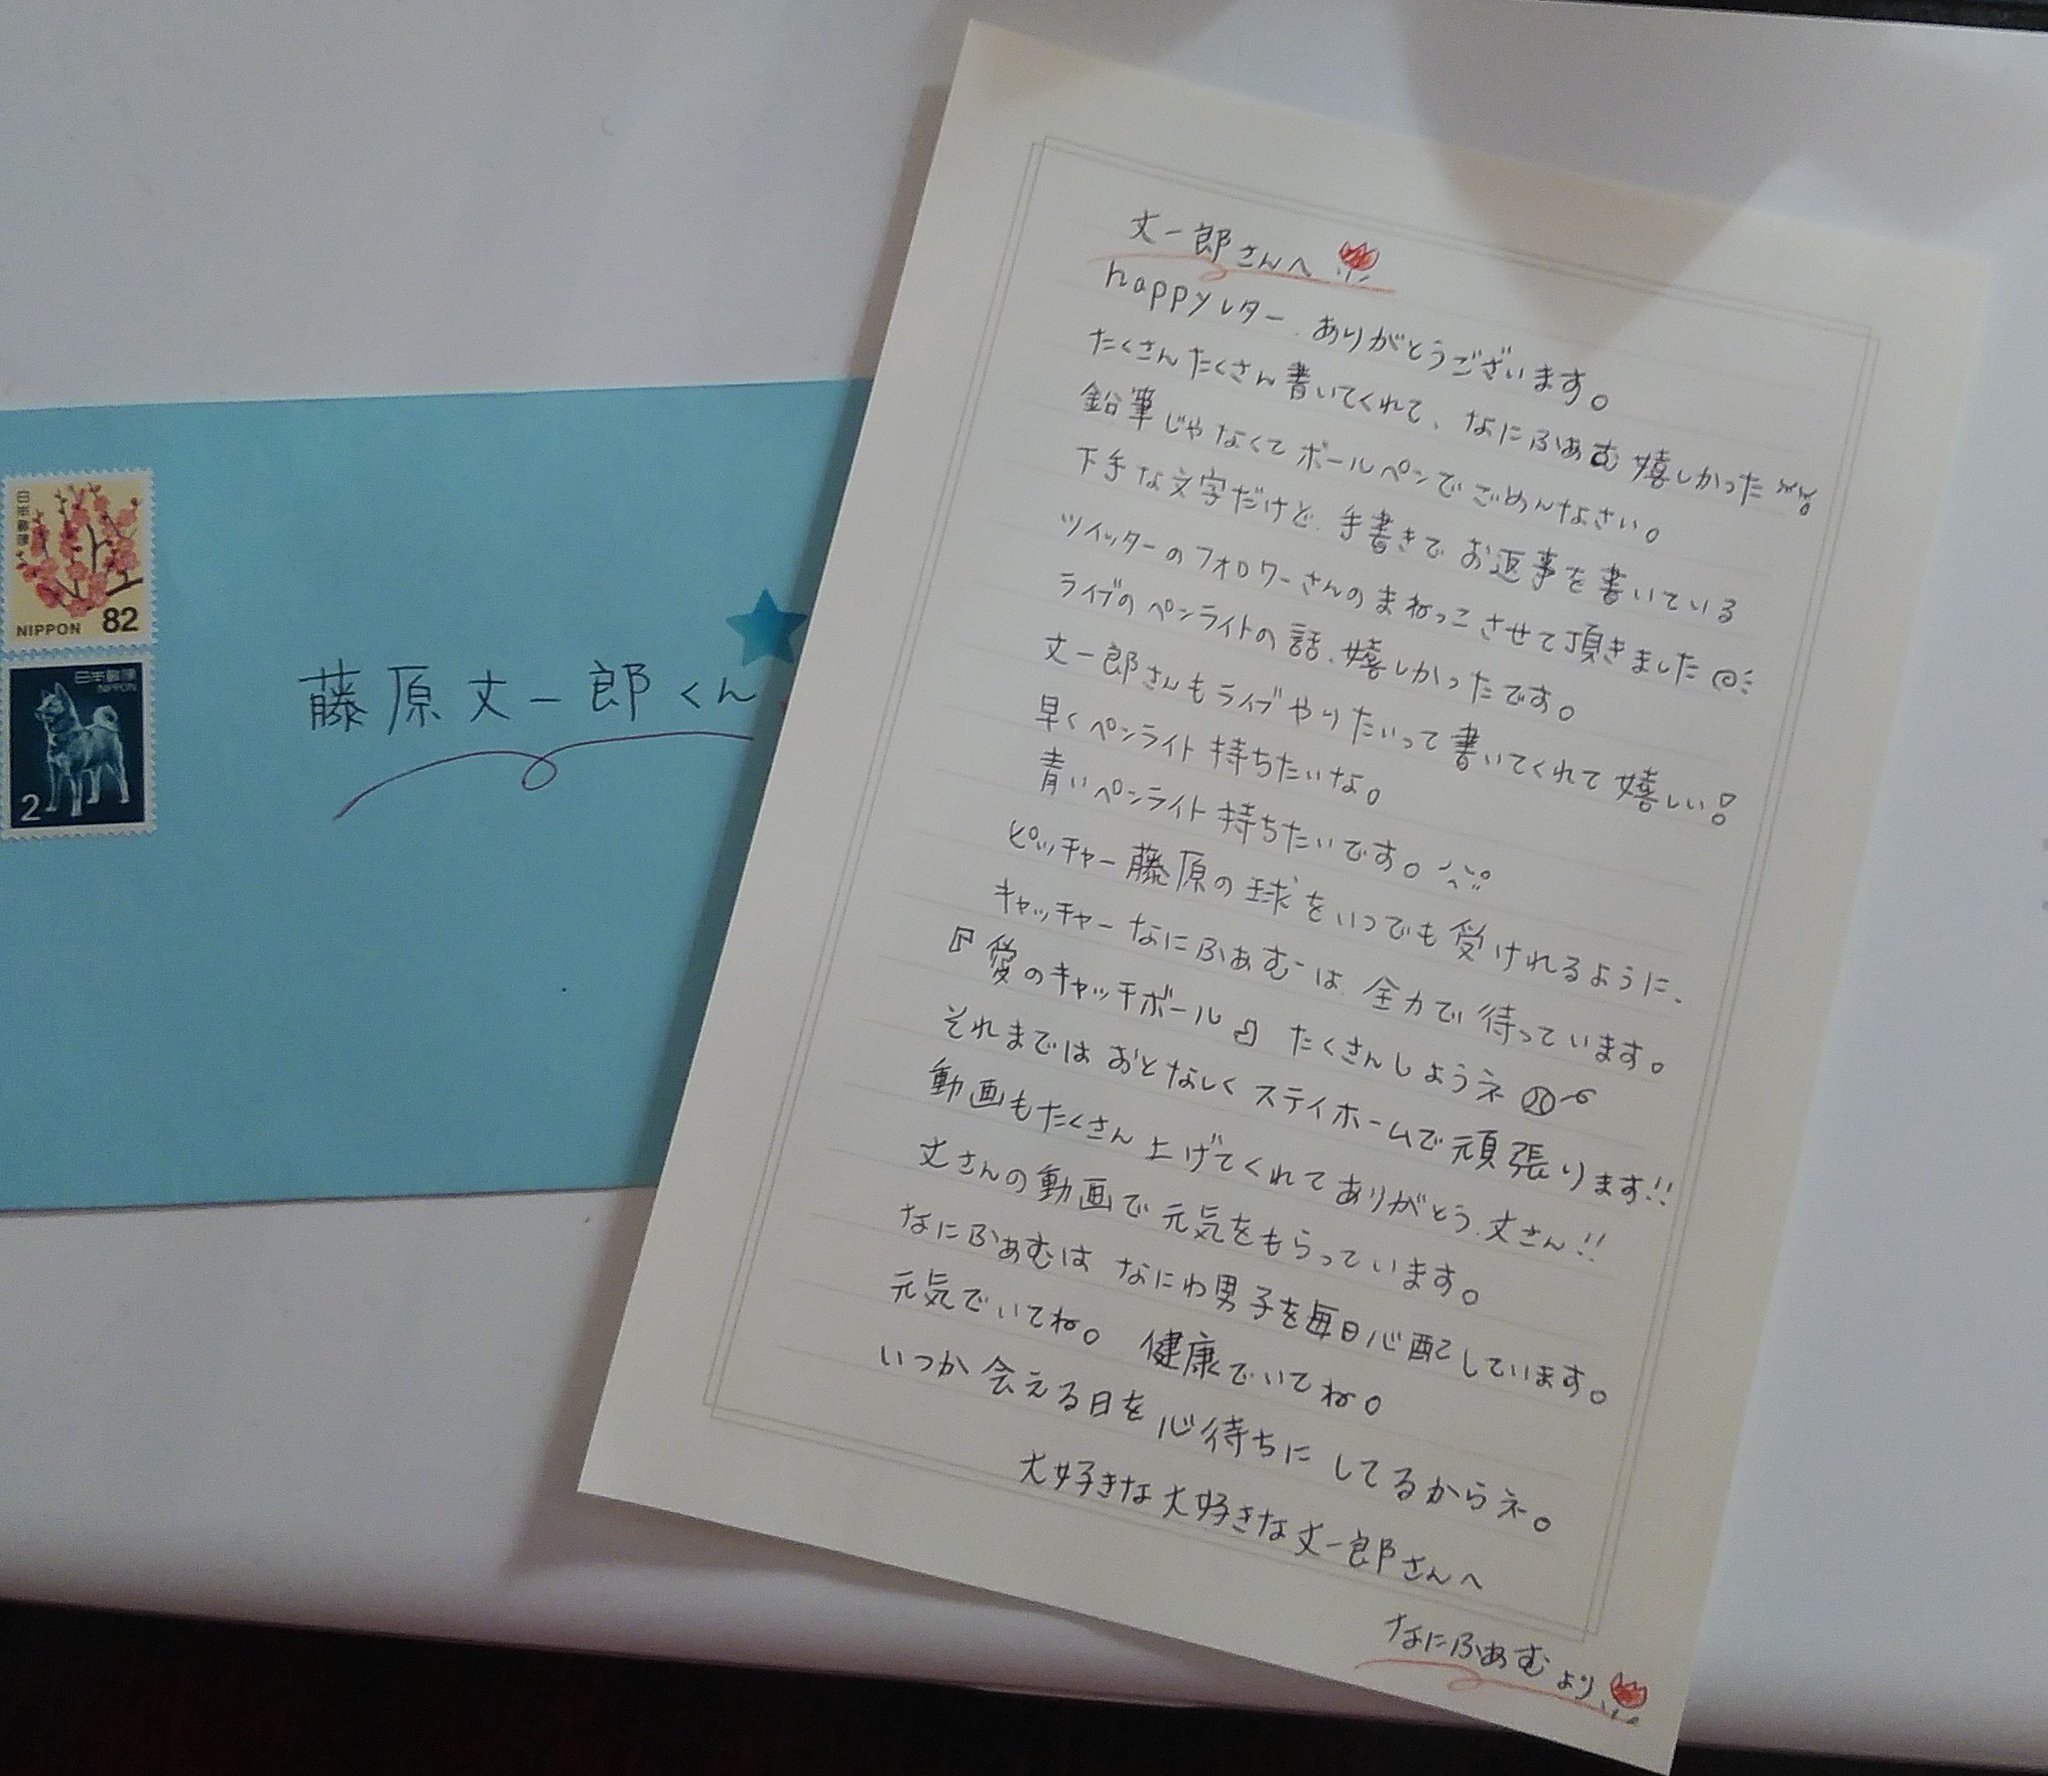 日本郵便
NIPPON 82
日本郵便
NIPPON
2
藤原丈一郎くん
丈一郎さんへ
happyレター、ありがとうございます。
たくさんたくさん書いてくれて、なにふぁむ嬉しかった
鉛筆じゃなくてボールペンでごめんなさい。
下手な文字だけど、手書きでお返事を書いている
ツイッターのフォロワーさんのまねっこさせて頂きました
ライブのペンライトの話、嬉しかったです。
丈一郎さんもライブやりたいって書いてくれて嬉しい!
早くペンライト持ちたいな。
青いペンライト持ちたいです。
ピッチャー藤原の球をいつでも受けれるように、
キャッチャーなにふぁむーは、全力で待っています。
『愛のキャッチボール』たくさんしようネ
それまではおとなしくステイホームで頑張ります!!
動画もたくさん上げてくれてありがとう、丈さん!!
丈さんの動画で元気をもらっています。
なにふぁむはなにわ男子を毎日心配しています。
元気でいてね。健康でいてね。
いつか会える日を心待ちにしてるからネ。
大好きな大好きな丈一郎さんへ
なにふぁむより、